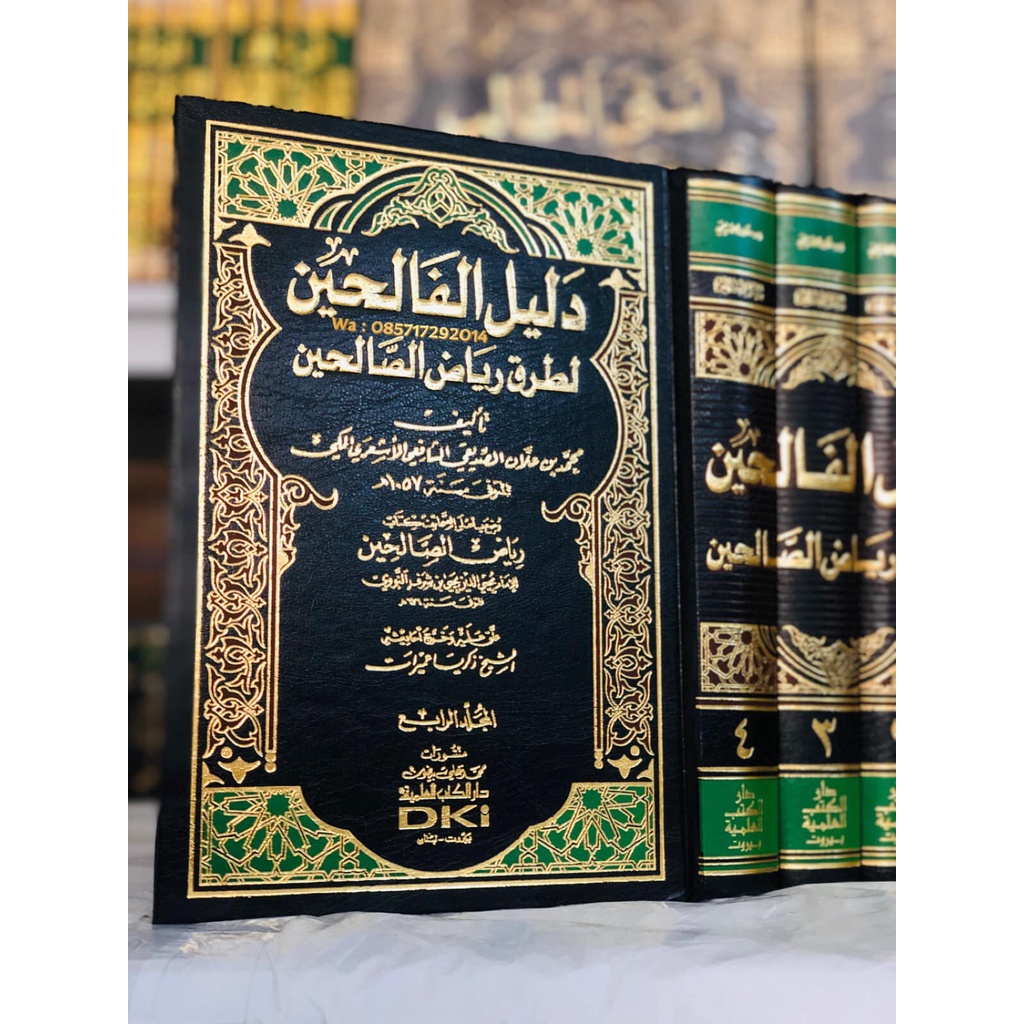 دَليل الفَالحيْن
Wa : 085717292014
لطرق ريَاض الصَّالحين
تأليف
محمد بن علان الصديقي الشافعي الأشعري المكي
المتوفى سنة ١٠٥٧هـ
رياض الصالحين
للإمام محيي الدين يحيى بن شرف النووي
المتوفى سنة ٦٧٦هـ
علق عليه وخرج أحاديثه
الشيخ زكريا عميرات
المجلد الرابع
منشورات
محمد علي بيضون
دار الكتب العلمية
DKi
بيروت - لبنان
٤
دار
الكتب
العلمية
بيروت
٣
دار
الكتب
العلمية
بيروت